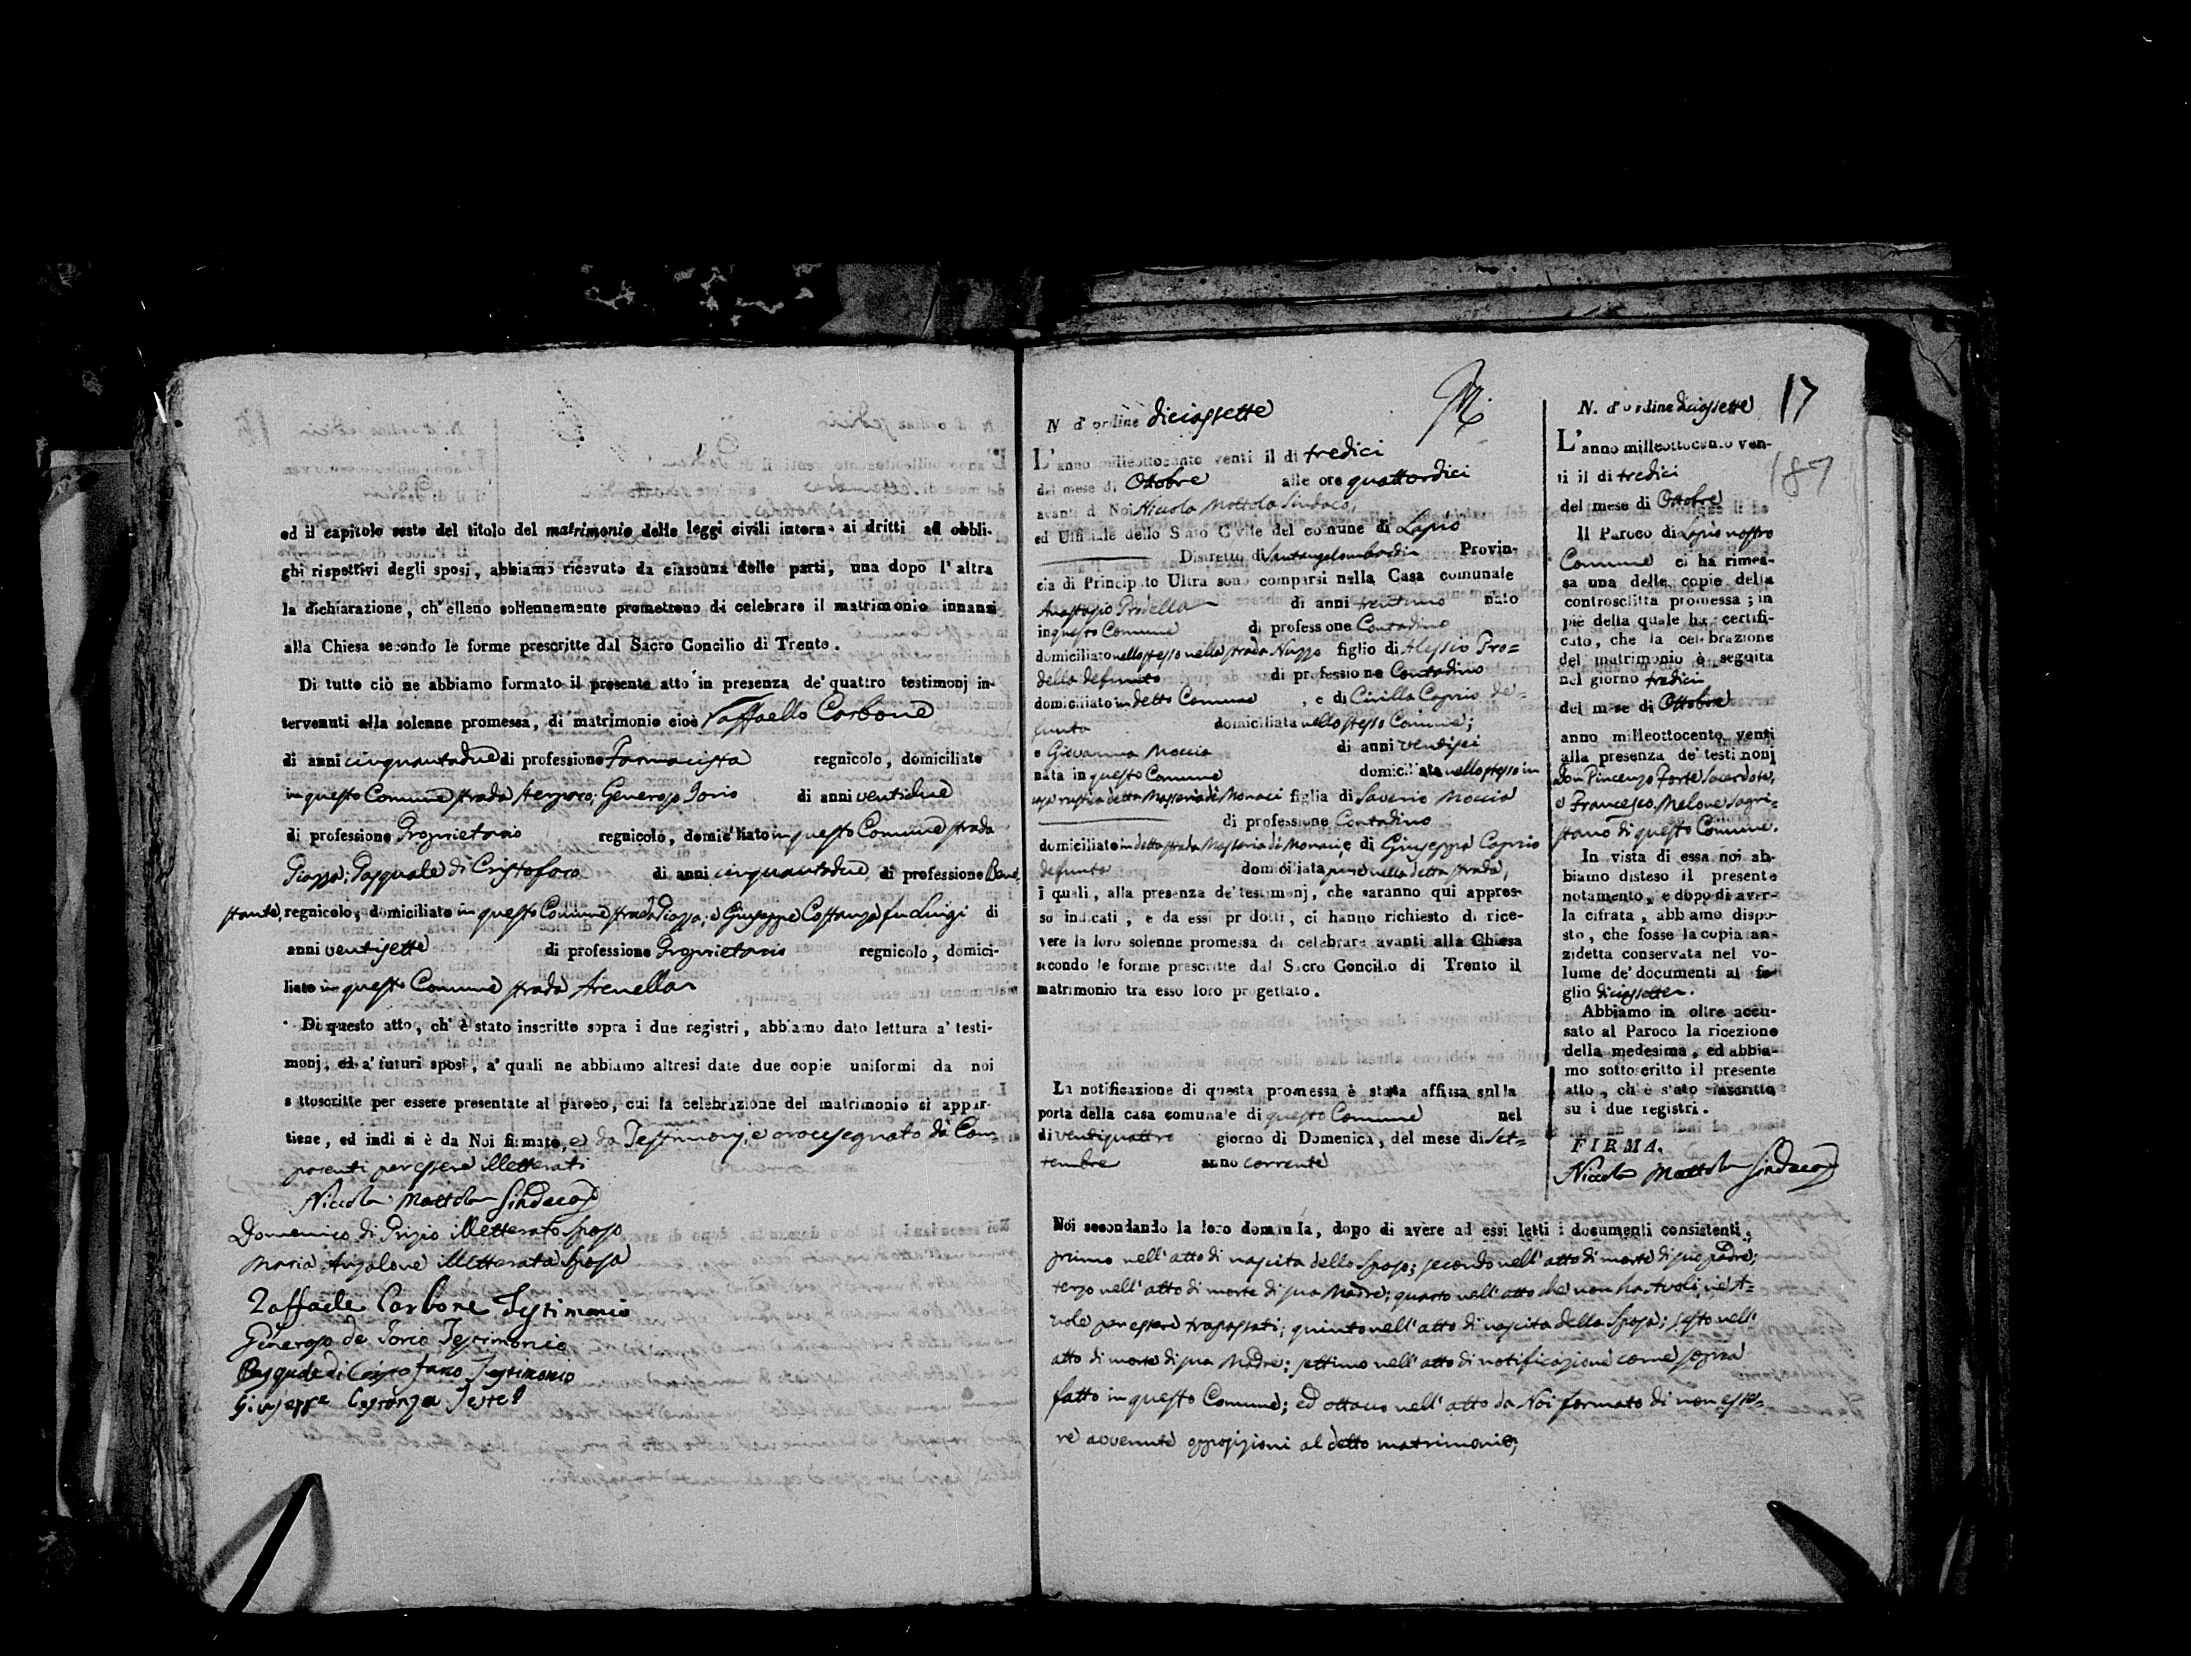 ed il capitolo sesto del titolo del matrimonio delle leggi civili intorno ai dritti ad obbli-
ghi rispettivi degli sposi, abbiamo ricevuto da ciascuna delle parti, una dopo l'altra
la dichiarazione, ch'elleno sollennemente promettono di celebrare il matrimonio innanzi
alla Chiesa secondo le forme prescritte dal Sacro Concilio di Trento.
Di tutto ciò ne abbiamo formato il presente atto in presenza de' quattro testimonj in-
tervenuti alla solenne promessa, di matrimonio cioè Raffaello Carbone
di anni cinquantadue di professione Farmacista regnicolo, domiciliato
in questo Comune strada Generoso Iorio di anni ventidue
di professione Proprietario regnicolo, domiciliato in questo Comune strada
Piazza; Pasquale di Cristofaro di anni cinquantadue di professione
regnicolo, domiciliato in questo Comune strada Piazza; e Giuseppe Costanza fu Luigi di
anni ventisette di professione Proprietario regnicolo, domici-
liato in questo Comune strada Arenella
Di questo atto, ch'è stato inscritto sopra i due registri, abbiamo dato lettura a' testi-
monj, ed a' futuri sposi, a' quali ne abbiamo altresì date due copie uniformi da noi
sottoscritte per essere presentate al paroco, cui la celebrazione del matrimonio si appar-
tiene, ed indi si è da Noi firmato, e da Testimonj, e crocesegnato da Com-
parenti per essere illetterati
Niccola Mottola Sindaco
Domenico di Prizio illetterato Sposo
Maria Anzalone illetterata Sposa
Raffaele Carbone Testimonio
Generoso de Iorio Testimonio
Pasquale di Cristofano Testimonio
Giuseppe Costanza Teste
N d'ordine diciassette
L'anno milleottocento venti il di tredici
del mese di Ottobre alle ore quattordici
avanti di Noi Niccola Mottola Sindaco,
ed Uffiziale dello Stato Civile del comune di Lapio
Distretto di Santangelombardi Provin-
cia di Principato Ultra sono comparsi nella Casa comunale
Anastasio Prodella di anni trentuno nato
in questo Comune di professione Contadino
domiciliato nello stesso nella strada Nuzzo figlio di Alessio Pro=
della defunto di professione Contadino
domiciliato in detto Comune, e di Civilla Caprio de=
funta domiciliata nello stesso Comune;
e Giovanna Moccia di anni ventisei
nata in questo Comune domiciliata nello stesso in
casa rustica detta Masseria di Monaci figlia di Saverio Moccia
di professione Contadino
domiciliato in detta strada Masseria di Monaci, e di Giuseppa Caprio
defunta domiciliata pure nella detta strada,
i quali, alla presenza de' testimonj, che saranno qui appres-
so indicati, e da essi prodotti, ci hanno richiesto di rice-
vere la loro solenne promessa di celebrare avanti alla Chiesa
secondo le forme prescritte dal Sacro Concilio di Trento il
matrimonio tra esso loro progettato.
La notificazione di questa promessa è stata affissa sulla
porta della casa comunale di questo Comune nel
di ventiquattro giorno di Domenica, del mese di Set=
tembre anno corrente
Noi secondando la loro domanda, dopo di avere ad essi letti i documenti consistenti,
primo nell'atto di nascita dello Sposo; secondo nell'atto di morte di suo Padre;
terzo nell'atto di morte di sua Madre; quarto nell'atto che non ha Avoli, ne A=
vole per essere trapassati; quinto nell'atto di nascita della Sposa; sesto nell'
atto di morte di sua Madre; settimo nell'atto di notificazione come sopra
fatto in questo Comune; ed ottavo nell'atto da Noi formato di non esse=
re avvenute opposizioni al detto matrimonio;
N. d'ordine diciassette 17
187
L'anno milleottocento ven-
ti il di tredici
del mese di Ottobre
Il Paroco di Lapio nostro
Comune ci ha rimes-
sa una delle copie della
controscritta promessa; in
piè della quale ha certifi-
cato, che la celebrazione
del matrimonio è seguita
nel giorno tredici
del mese di Ottobre
anno milleottocento venti
alla presenza de' testimonj
Don Vincenzo Forte Sacerdote,
e Francesco Melone Sagri=
stano di questo Comune.
In vista di essa noi ab-
biamo disteso il presente
notamento, e dopo di aver-
la cifrata, abbiamo dispo-
sto, che fosse la copia an-
zidetta conservata nel vo-
lume de' documenti al fo-
glio diciassette.
Abbiamo in oltre accu-
sato al Paroco la ricezione
della medesima, ed abbia-
mo sottoscritto il presente
atto, ch'è stato inscritto
su i due registri.
FIRMA.
Niccola Mottola Sindaco